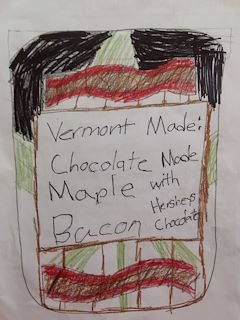 Vermont Made:
Chocolate Made
Maple with
Bacon Hersheys
Chocolate